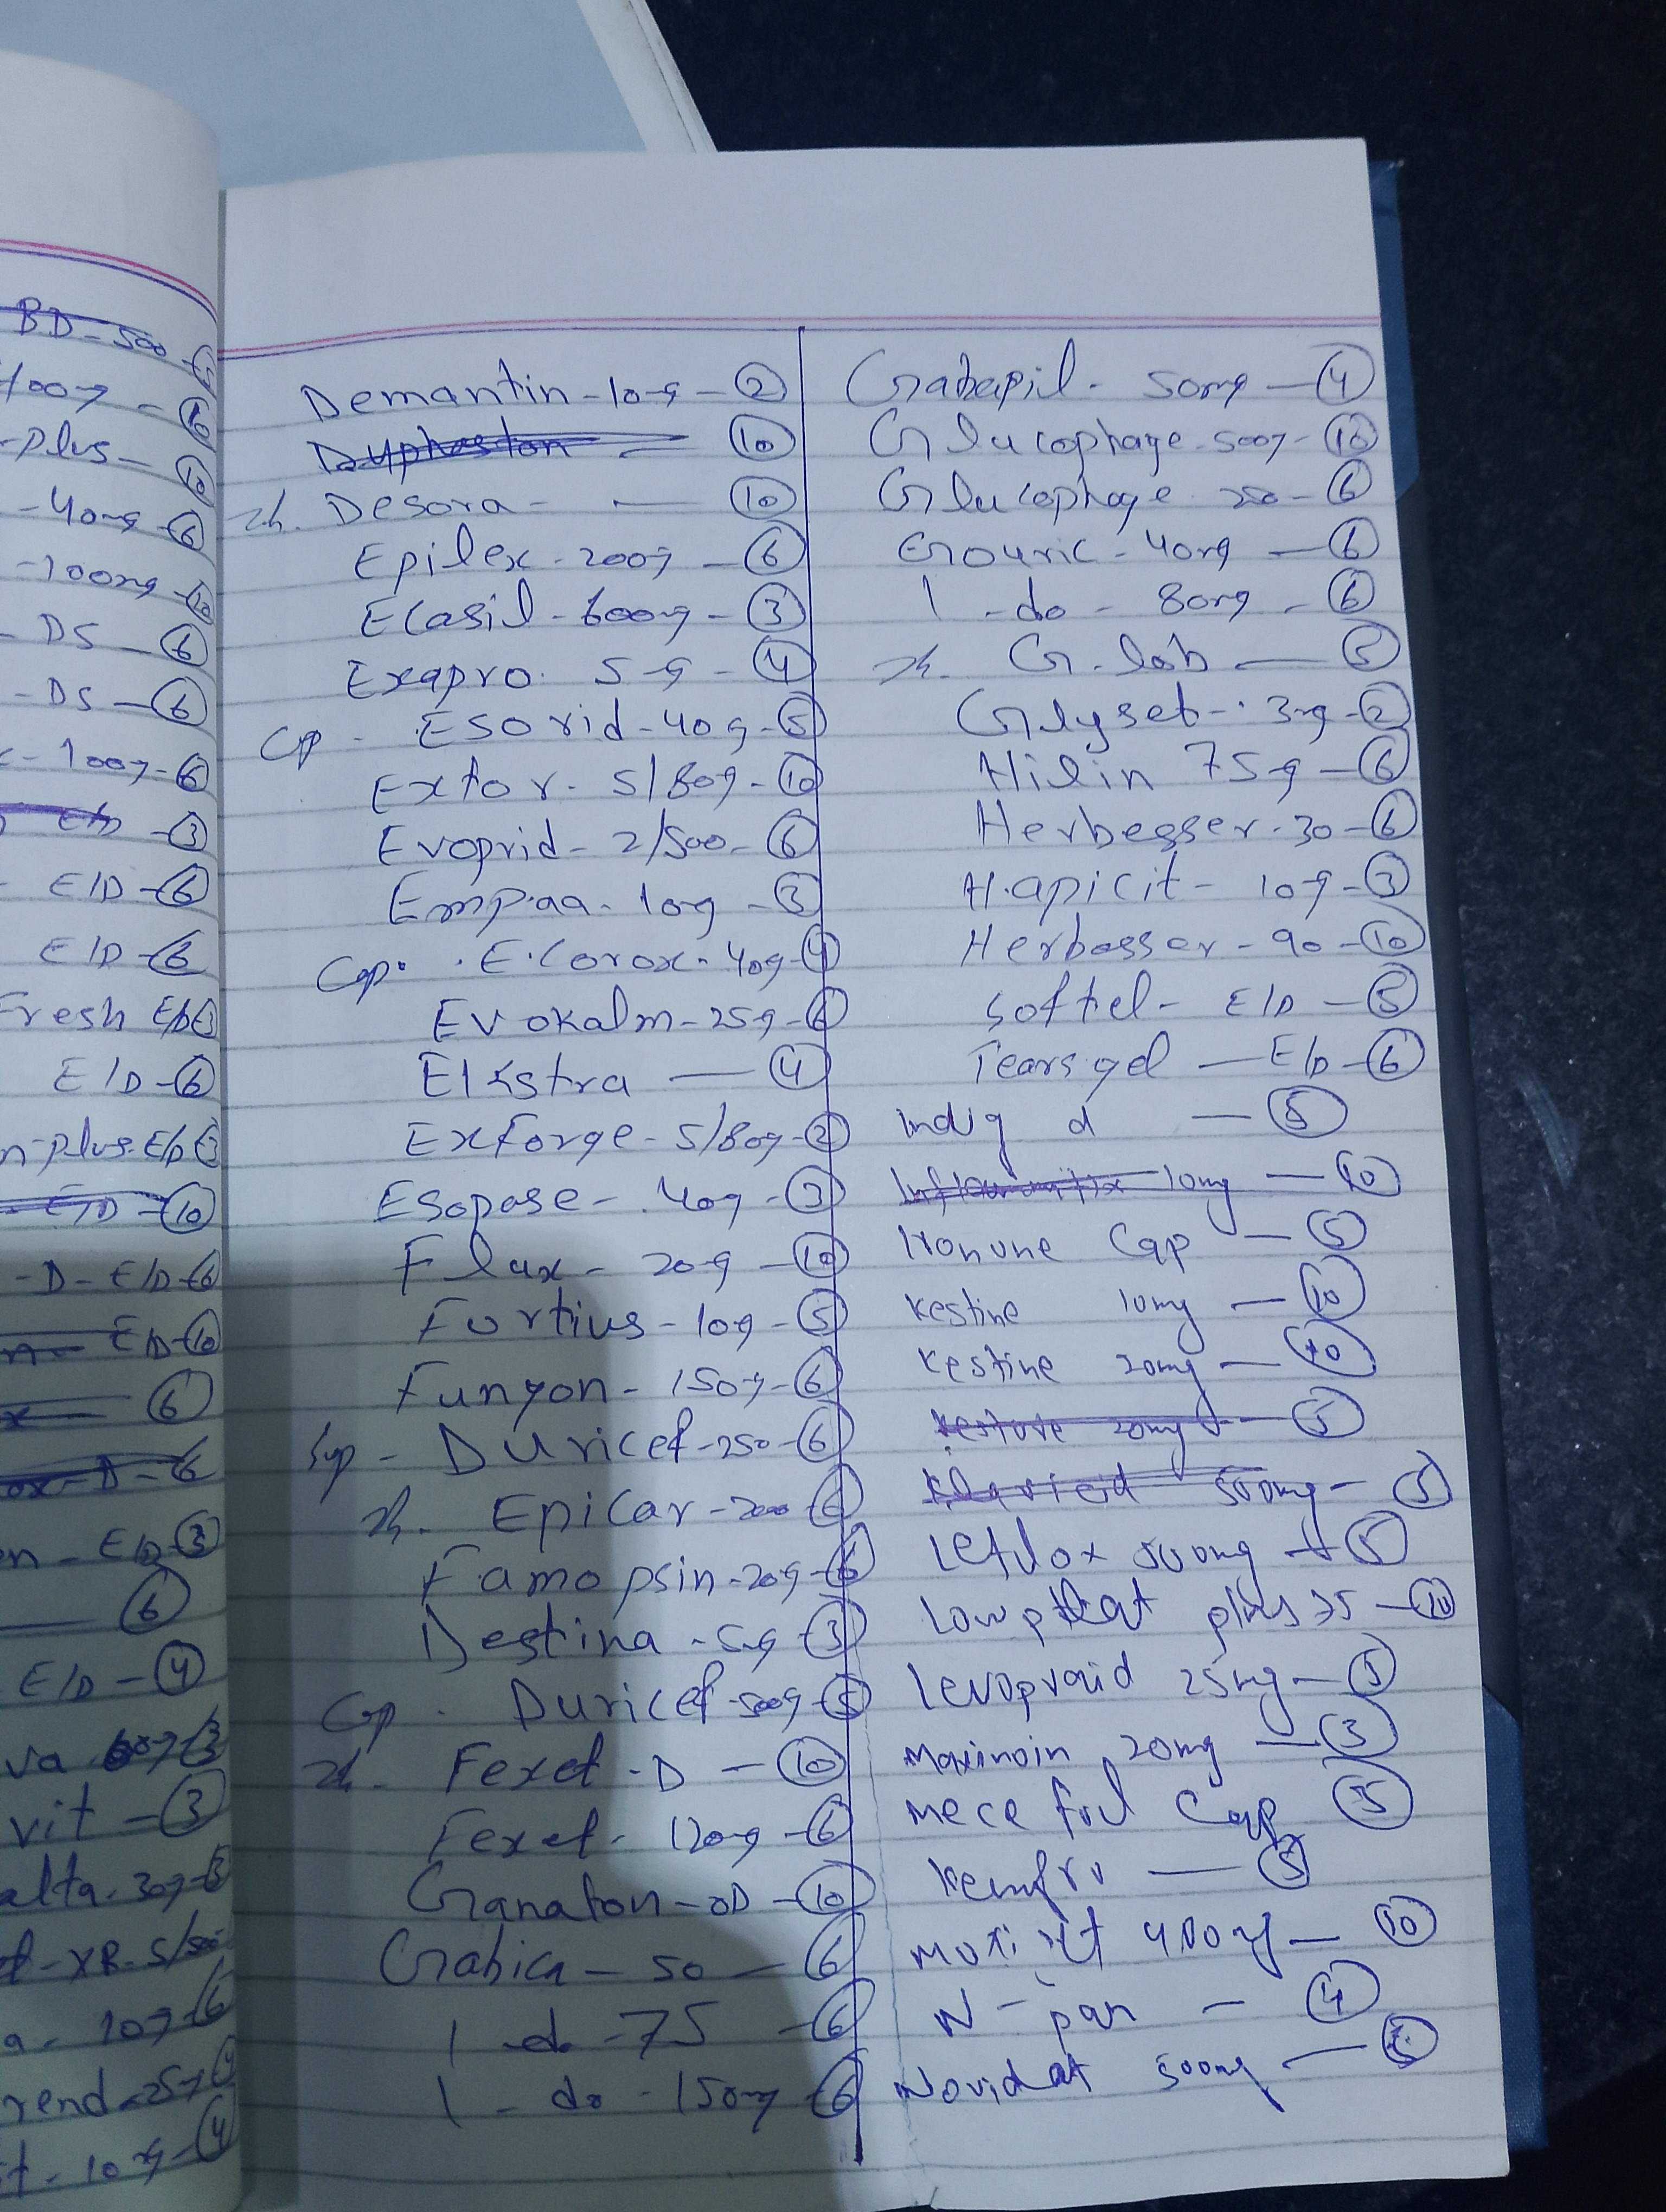 BD-500
100g -
-Plus- 10
-40mg 6
-100mg 10
- DS - 6
- DS - 6
- 100g - 6
E/D - 3
E/D - 6
E/D - 6
Fresh E/D 3
E/D - 6
n-plus- E/D 3
E/D - 10
-D- E/D - 6
E/D - 10
6
-D- 6
n - E/D 3
6
E/D - 4
va 60g 3
vit - 3
alta. 30g - 3
-XR- 5/500
a - 10g - 6
rend - 25g 4
t - 10g - 4
Demantin - 10g - 2
Duphaston — 10
Desora - — 10
Epilex - 200g - 6
Ecasil - 600g - 3
Exapro. 5g - 4
Cap - Esorid - 40g - 5
Extor - 5/80g - 10
Evoprid - 2/500 - 6
Empaa - 10g - 3
Cap. E.Corox - 40g - 4
Evokalm - 25g - 6
Elkstra — 4
Exforge - 5/80g - 2
Esopase - 40g - 3
Flux - 20g - 10
Fortius - 10g - 5
Funyon - 150g - 6
Syp - Duricef - 250 - 6
Epicar - 2000 6
Famopsin - 20g - 6
Destina - 5g 3
Cap. Duricef - 500g - 5
Fexet - D - 10
Fexet - 120g - 6
Ganaton - OD - 10
Gabica - 50 - 6
1 - do - 75 - 6
1 - do - 150mg - 6
50mg - 4
Glucophage - 500g - 10
Glucophage 250 - 6
Gouric - 40mg - 6
1 - do - 80mg - 6
G. lob — 5
Glyset - 3mg - 2
Hilin 75g - 6
Herbesser - 30 - 6
H.apicit - 10g - 3
Herbesser - 90 - 10
Softel - E/D - 5
Tearsgel — E/D - 6
Indig d — 5
10mg — 10
Cap — 5
Kestine 10mg — 10
Kestine 20mg — 10
20mg — 5
500mg — 5
Leflox 500mg — 5
Lowplat plus 75 — 10
Levopraid 25mg — 5
20mg — 3
Mecefol Cap 5
Kemfro — 5
400mg — 10
N - pan - 4
Novidat 500mg —